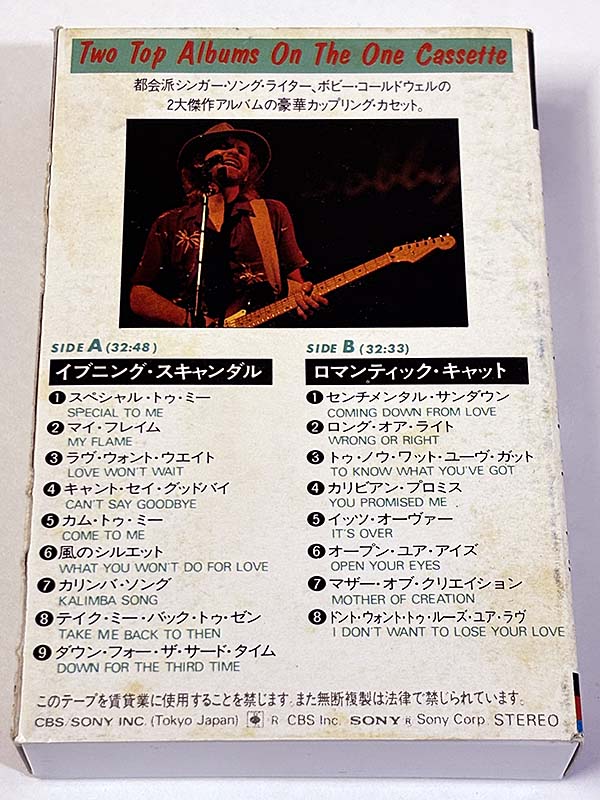 Two Top Albums On The One Cassette
都会派シンガー・ソング・ライター、ボビー・コールドウェルの
2大傑作アルバムの豪華カップリング・カセット。
Bobby
SIDE A (32:48)
イブニング・スキャンダル
❶スペシャル・トゥ・ミー
SPECIAL TO ME
❷マイ・フレイム
MY FLAME
❸ラヴ・ウォント・ウエイト
LOVE WON'T WAIT
❹キャント・セイ・グッドバイ
CAN'T SAY GOODBYE
❺カム・トゥ・ミー
COME TO ME
❻風のシルエット
WHAT YOU WON'T DO FOR LOVE
❼カリンバ・ソング
KALIMBA SONG
❽テイク・ミー・バック・トゥ・ゼン
TAKE ME BACK TO THEN
❾ダウン・フォー・ザ・サード・タイム
DOWN FOR THE THIRD TIME
SIDE B (32:33)
ロマンティック・キャット
❶センチメンタル・サンダウン
COMING DOWN FROM LOVE
❷ロング・オア・ライト
WRONG OR RIGHT
❸トゥ・ノウ・ワット・ユーヴ・ガット
TO KNOW WHAT YOU'VE GOT
❹カリビアン・プロミス
YOU PROMISED ME
❺イッツ・オーヴァー
IT'S OVER
❻オープン・ユア・アイズ
OPEN YOUR EYES
❼マザー・オブ・クリエイション
MOTHER OF CREATION
❽ドント・ウォント・トゥ・ルーズ・ユア・ラヴ
I DON'T WANT TO LOSE YOUR LOVE
このテープを賃貸業に使用することを禁じます。また無断複製は法律で禁じられています。
CBS/SONY INC. (Tokyo Japan) R CBS Inc. SONY R Sony Corp. STEREO